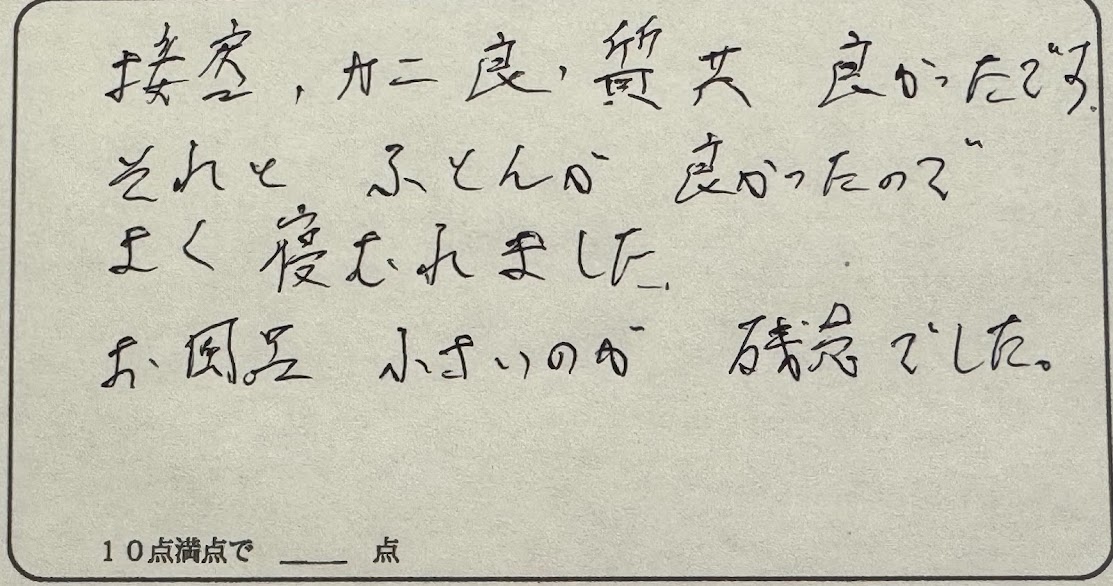 接客、カニ良、質共 良かったです.
それと ふとんが 良かったので
よく寝むれました.
お風呂 小さいのが 残念でした。
10点満点で ____ 点